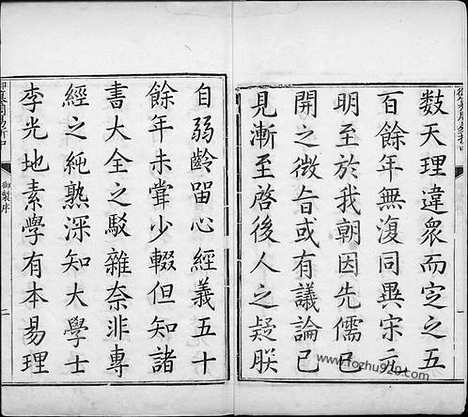 數天理違衆而定之五
百餘年無復同異宋元
明至於我朝因先儒已
開之微旨或有議論已
見漸至啓後人之疑朕
御製序
二
自弱齡留心經義五十
餘年未嘗少輟但知諸
書大全之駁雜奈非專
經之純熟深知大學士
李光地素學有本易理
www.fozhu920.com